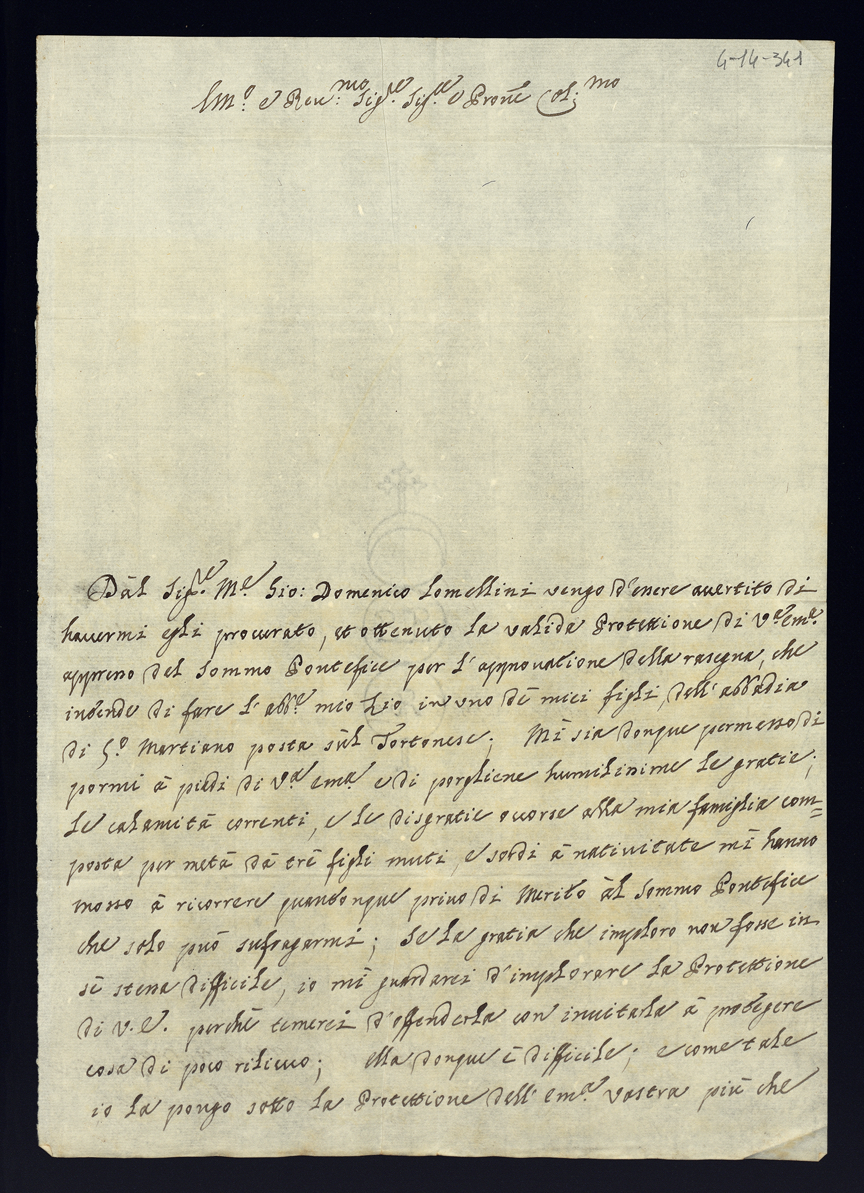 4-14-341
Em.o e Reu.mo Sig.re Sig.re e Prone Col:mo
Dàl Sig.re M.e Gio: Domenico Lomellini vengo d'essere auertito di
hauermi egli procurato, et ottenuto la valida Protettione di V.a em.a
appresso del Sommo Pontefice per l'approuatione della rasegna, che
intende di fare l'abb.e mio Zio in vno dè miei figli, dell'abbadia
di S.o Martiano posta sùl Tortonese; Mi sia donque permesso di
pormi à piedi di V.a em.a e di porgliene humilissime le gratie;
Le calamità correnti, e le disgratie occorse alla mia famiglia com=
posta per metà dà trè figli muti, e sordi à natiuitate mi hanno
mosso à ricorrere quantonque priuo di Merito àl Sommo Pontefice
che solo può sufragarmi; Se la gratia che imploro non fosse in
sè stessa difficile, io mi guardarei d'implorare la Protettione
di V.E. perchè temerei d'offenderla con inuitarla à protegere
cosa di poco rilieuo; ella donque è difficile; e come tale
io la pongo sotto la Protettione dell'em.a vostra più che